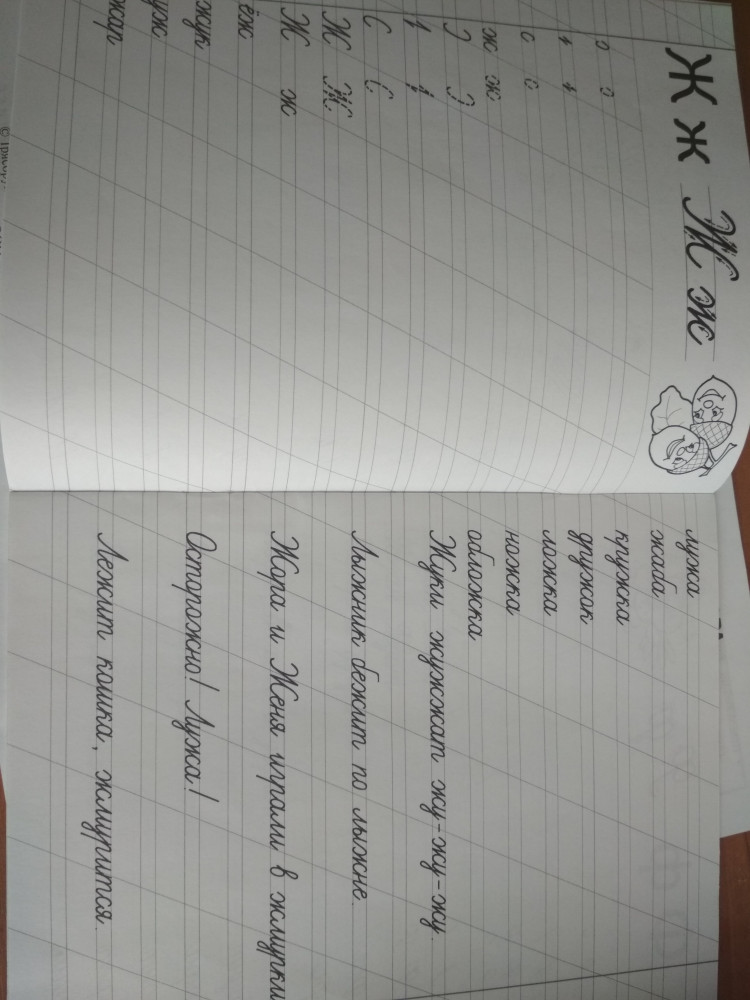 Ж ж Ж ж
ж ж
С С
Ж Ж
Ж ж
ёж
жук
уж
лужа
жаба
кружка
дружок
ложка
ножка
обложка
Жуки жужжат жу-жу-жу.
Лыжник бежит по лыжне.
Жора и Женя играли в жмурки
Осторожно! Лужа!
Лежит кошка, жмурится.